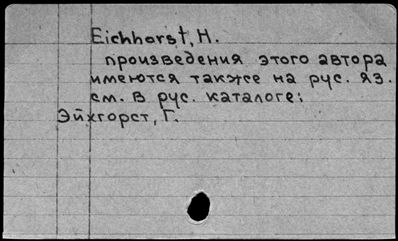 Eichhorst, H.
произведения этого автора
имеются также на рус. яз.
см. в рус. каталоге:
Эйхгорст, Г.